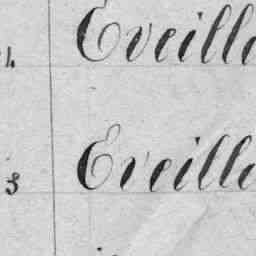 4 Eveill
3 Eveill